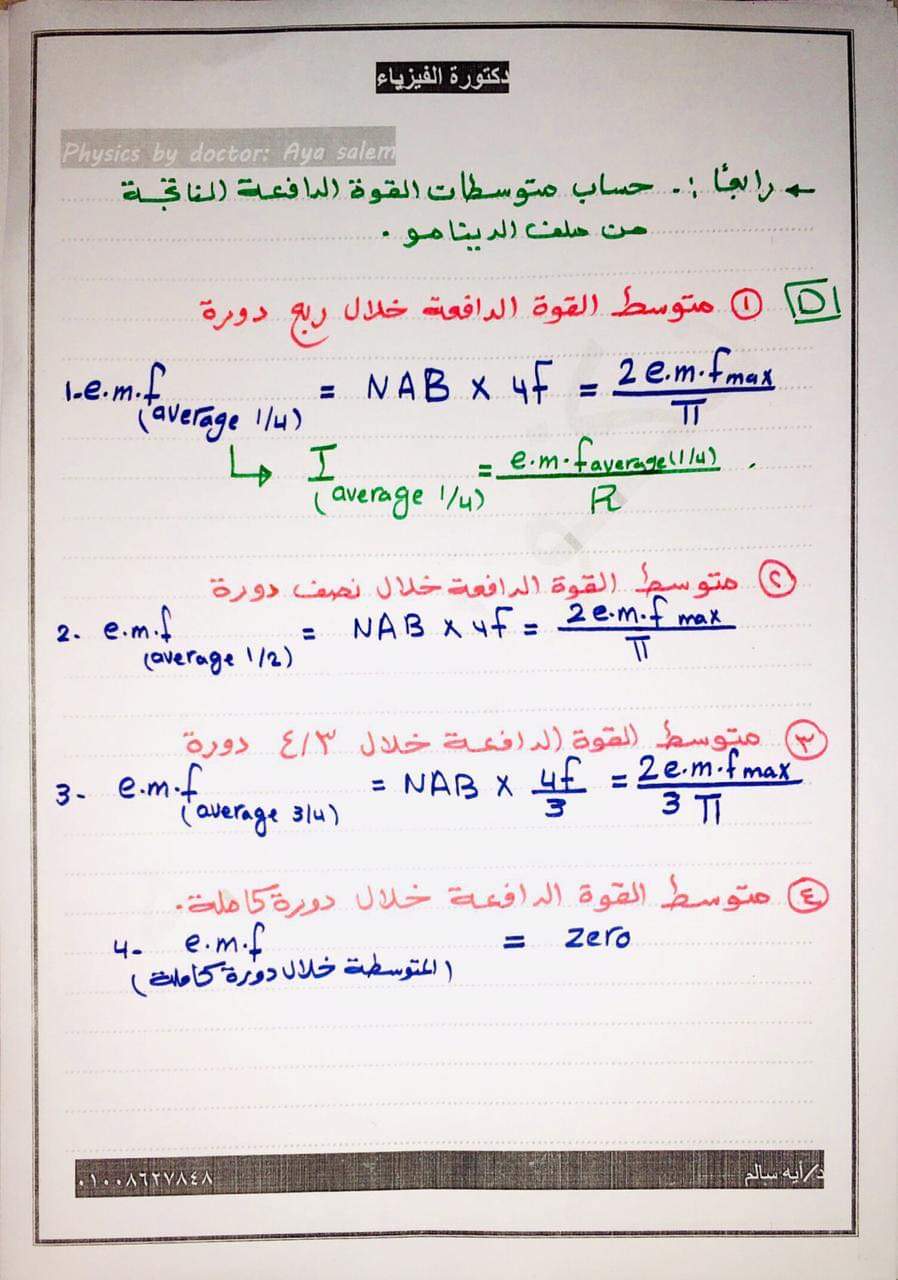 دكتورة الفيزياء
Physics by doctor: Aya salem
← رابعًا :. حساب متوسطات القوة الدافعة الناتجة
من ملف الدينامو .
D ① متوسط القوة الدافعة خلال ربع دورة
1-e.m.f (average 1/4) = NAB × 4f = 2 e.m.f max / π
↳ I (average 1/4) = e.m.f average(1/4) / R .
② متوسط القوة الدافعة خلال نصف دورة
2- e.m.f (average 1/2) = NAB × 4f = 2 e.m.f max / π
③ متوسط القوة الدافعة خلال ٤/٣ دورة
3- e.m.f (average 3/4) = NAB × 4f / 3 = 2 e.m.f max / 3 π
④ متوسط القوة الدافعة خلال دورة كاملة.
4- e.m.f (المتوسطة خلال دورة كاملة) = zero
د/أيه سالم
٠١٠٠٨٦٢٧٨٤٨